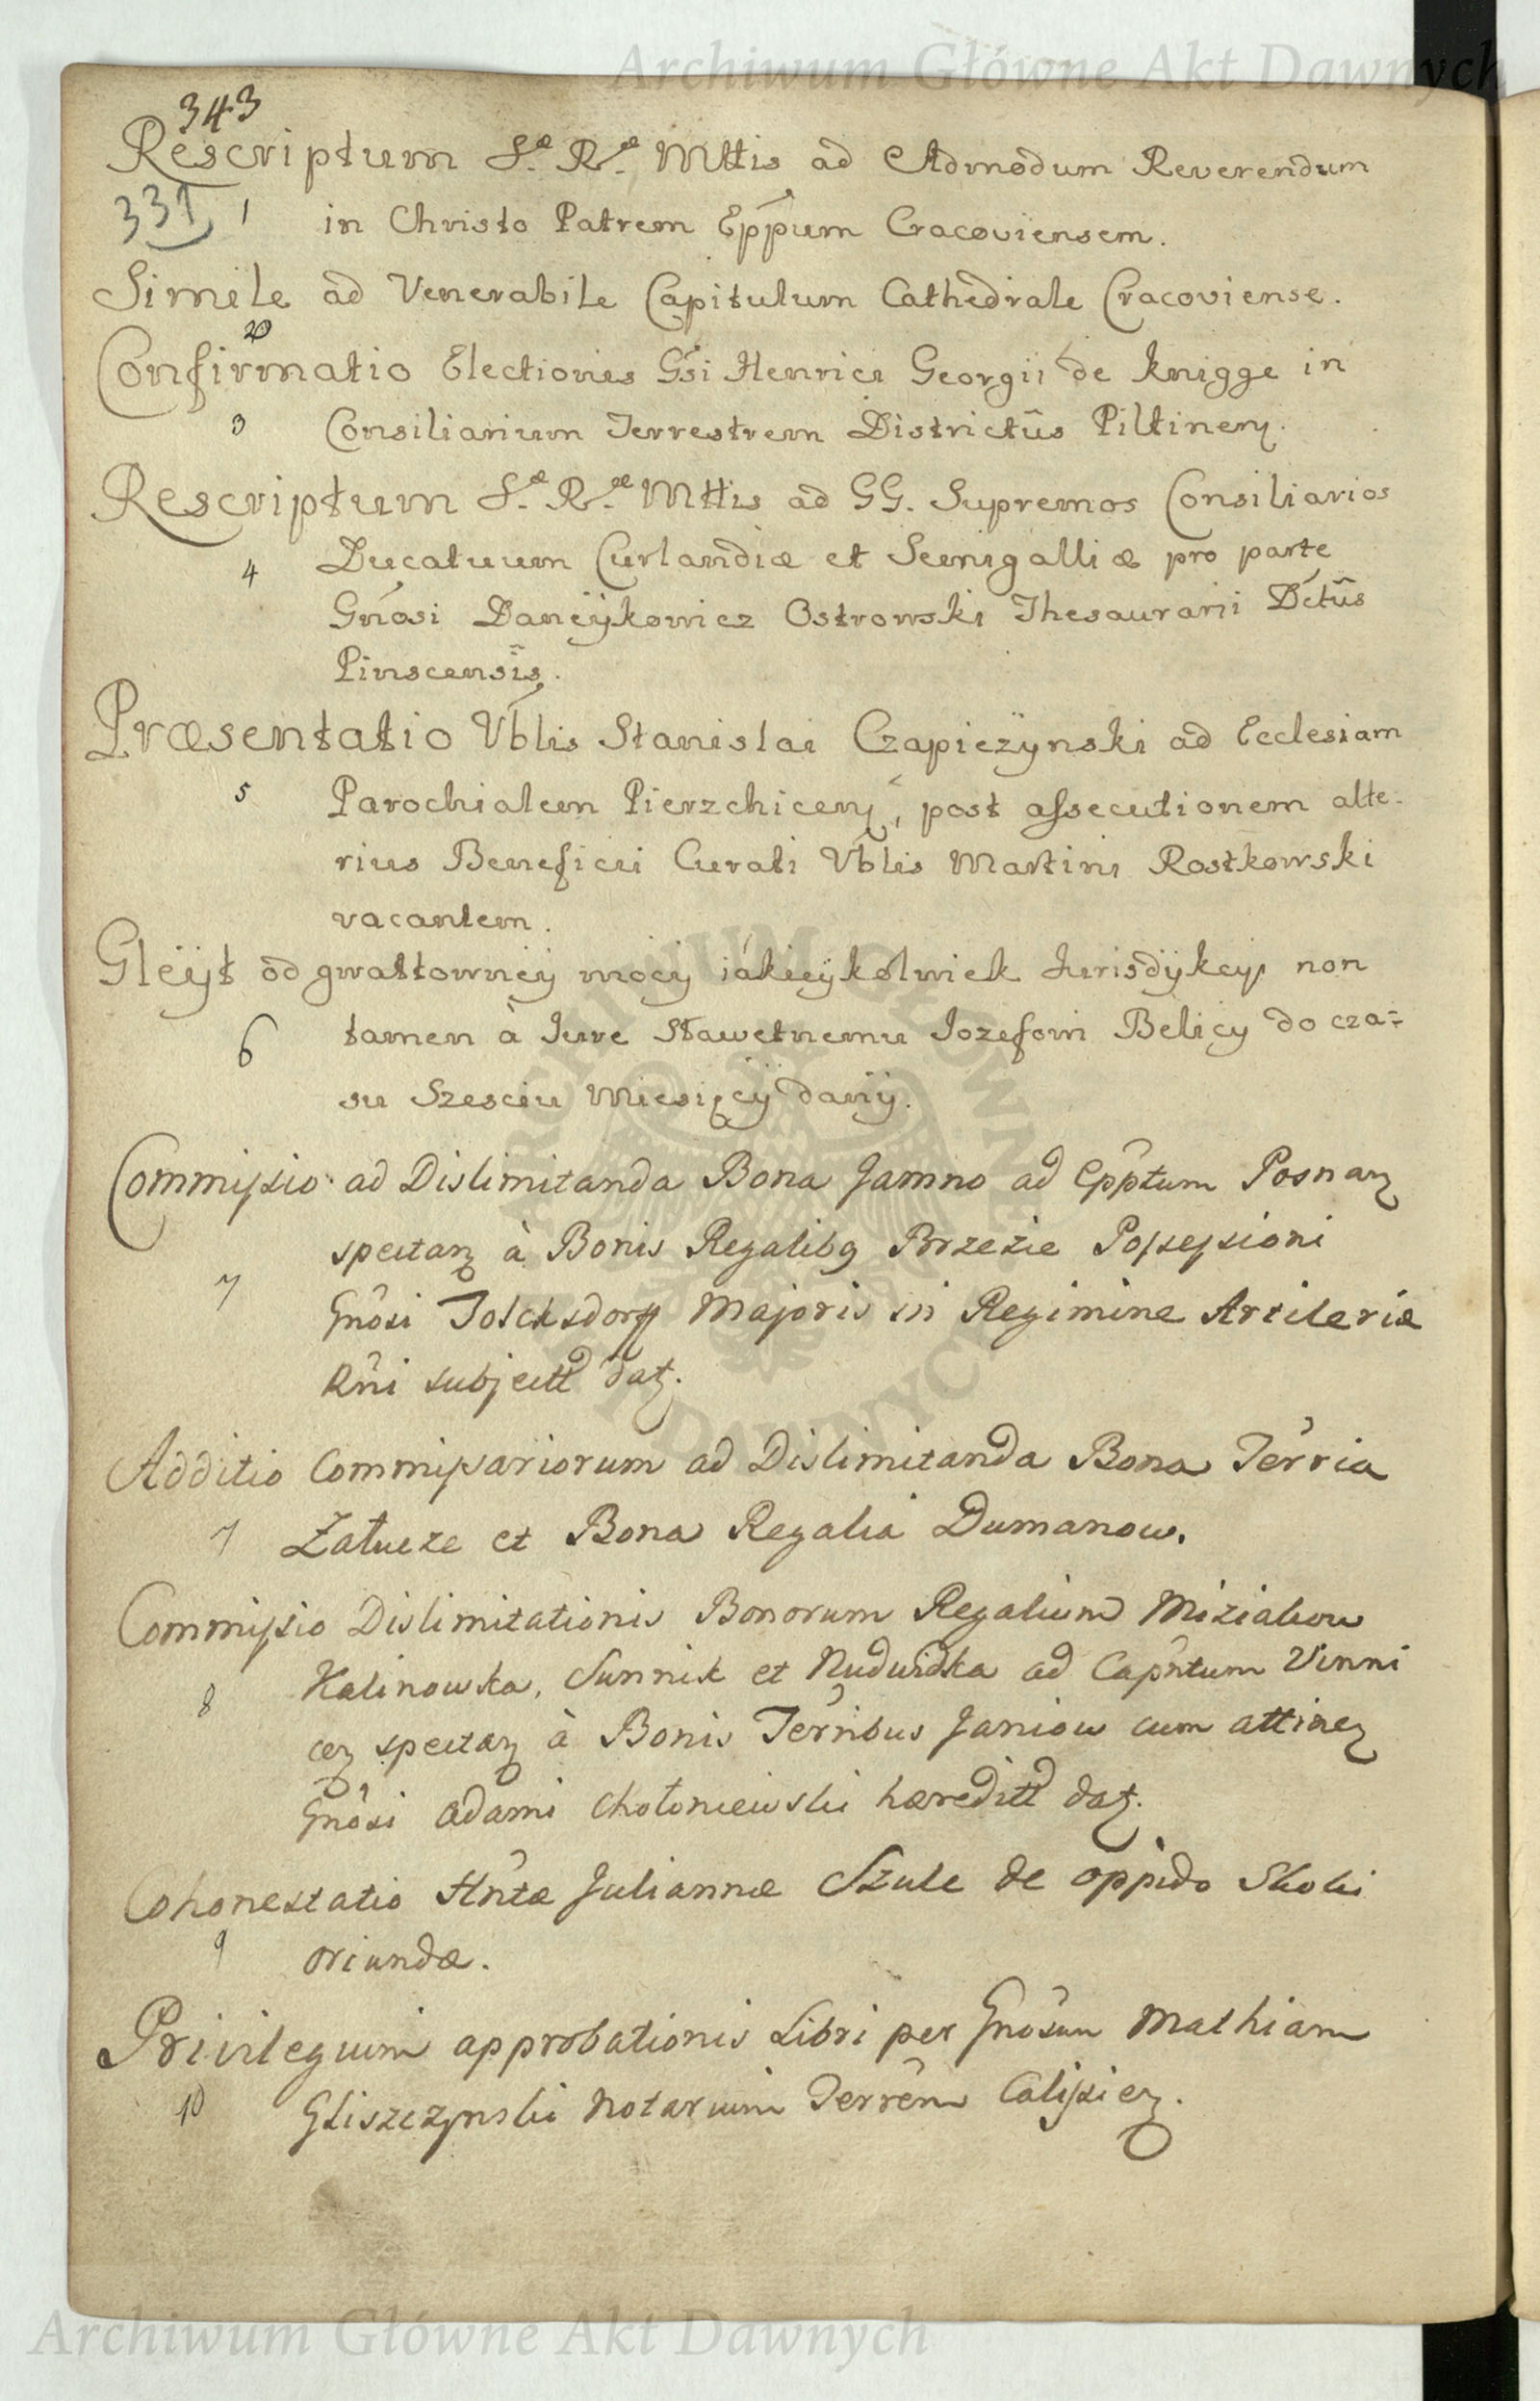 Archiwum Główne Akt Dawnych
343
Rescriptum S.æ R.æ Mttis ad Admodum Reverendum
331 1 in Christo Patrem Eppum Cracoviensem.
Simile ad Venerabile Capitulum Cathedrale Cracoviense.
20
Confirmatio Electionis Gsi Henrici Georgii de Knigge in
3 Consiliarium Terrestrem Districtûs Piltinen.
Rescriptum S.æ R.æ Mttis ad GG. Supremos Consiliarios
4 Ducatuum Curlandiæ et Semigalliæ pro parte
Gnosi Daneÿkowicz Ostrowski Thesaurarii Dctûs
Pinscensis.
Præsentatio Vblis Stanislai Czapiezÿnski ad Ecclesiam
5 Parochialem Pierzchicen, post assecutionem alte-
rius Beneficii Curati Vblis Martini Rostkowski
vacantem.
Gleÿt od gwałtowneÿ mocÿ iakieÿkolwiek Jurisdÿkcÿi non
6 tamen à Jure Sławetnemu Jozefowi Belicy do cza-
su Szesciu Miesięcÿ danÿ.
Commissio ad Dislimitanda Bona Jamno ad Epptum Posnan
spectan à Bonis Regalibq Brzezie Possessioni
7 Gnosi Tolcksdorff Majoris in Regimine Artileriæ
Rni subjectt dat.
Additio Commissariorum ad Dislimitanda Bona Terria
7 Załucze et Bona Regalia Dumanow.
Commissio Dislimitationis Bonorum Regalium Miziakow
8 Kalinowka, Sunnik et Nuduidka ad Capntum Vinni
cen spectan à Bonis Terribus Janiow cum attinen
Gnosi Adami Chołoniewski hæreditt dat.
Cohonestatio Hntæ Juliannæ Szule de oppido Skoki
9 oriundæ.
Privilegium approbationis Libri per Gnosum Mathiam
10 Gliszczynski Notarium Terrem Calissien.
Archiwum Główne Akt Dawnych